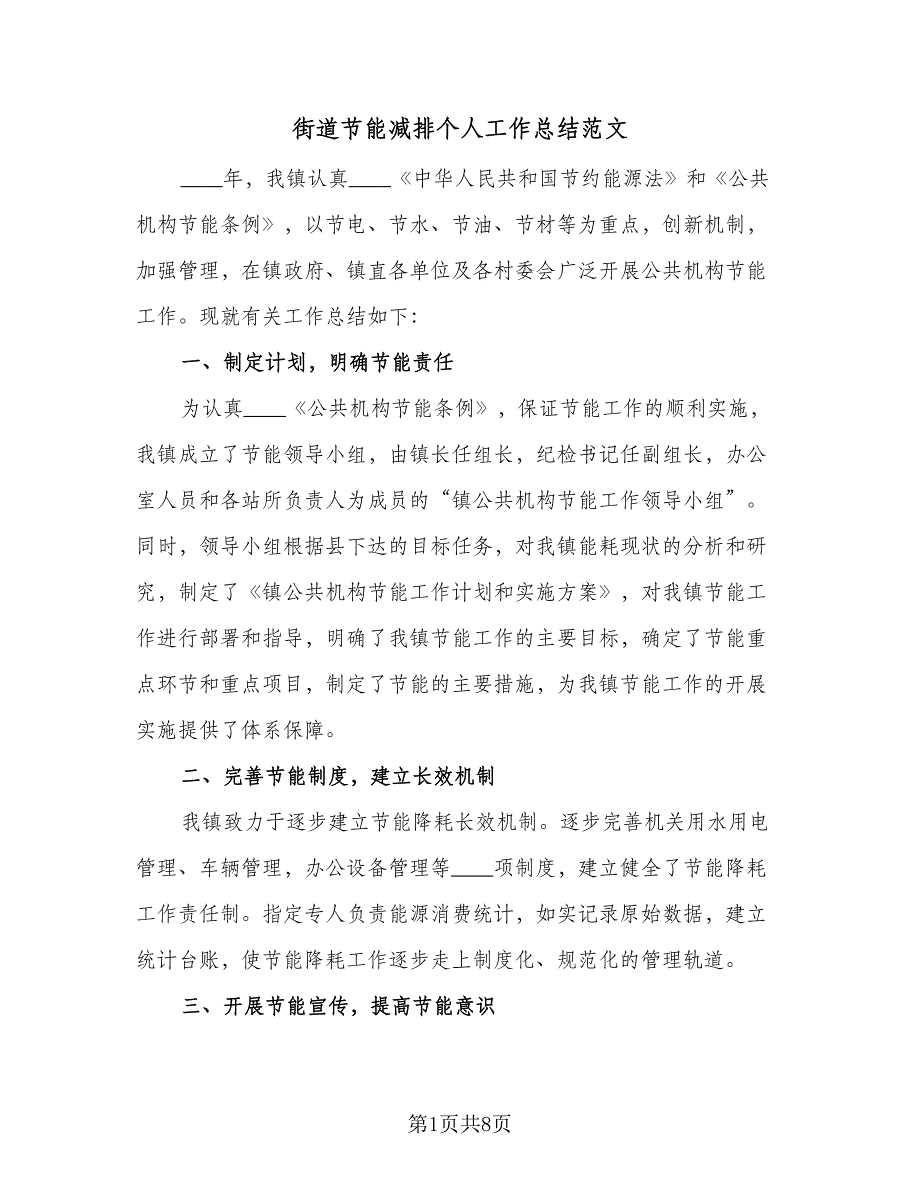 街道节能减排个人工作总结范文
____年，我镇认真____《中华人民共和国节约能源法》和《公共
机构节能条例》，以节电、节水、节油、节材等为重点，创新机制，
加强管理，在镇政府、镇直各单位及各村委会广泛开展公共机构节能
工作。现就有关工作总结如下：
一、制定计划，明确节能责任
为认真____《公共机构节能条例》，保证节能工作的顺利实施，
我镇成立了节能领导小组，由镇长任组长，纪检书记任副组长，办公
室人员和各站所负责人为成员的“镇公共机构节能工作领导小组”。
同时，领导小组根据县下达的目标任务，对我镇能耗现状的分析和研
究，制定了《镇公共机构节能工作计划和实施方案》，对我镇节能工
作进行部署和指导，明确了我镇节能工作的主要目标，确定了节能重
点环节和重点项目，制定了节能的主要措施，为我镇节能工作的开展
实施提供了体系保障。
二、完善节能制度，建立长效机制
我镇致力于逐步建立节能降耗长效机制。逐步完善机关用水用电
管理、车辆管理，办公设备管理等____项制度，建立健全了节能降耗
工作责任制。指定专人负责能源消费统计，如实记录原始数据，建立
统计台账，使节能降耗工作逐步走上制度化、规范化的管理轨道。
三、开展节能宣传，提高节能意识
第1页共8页